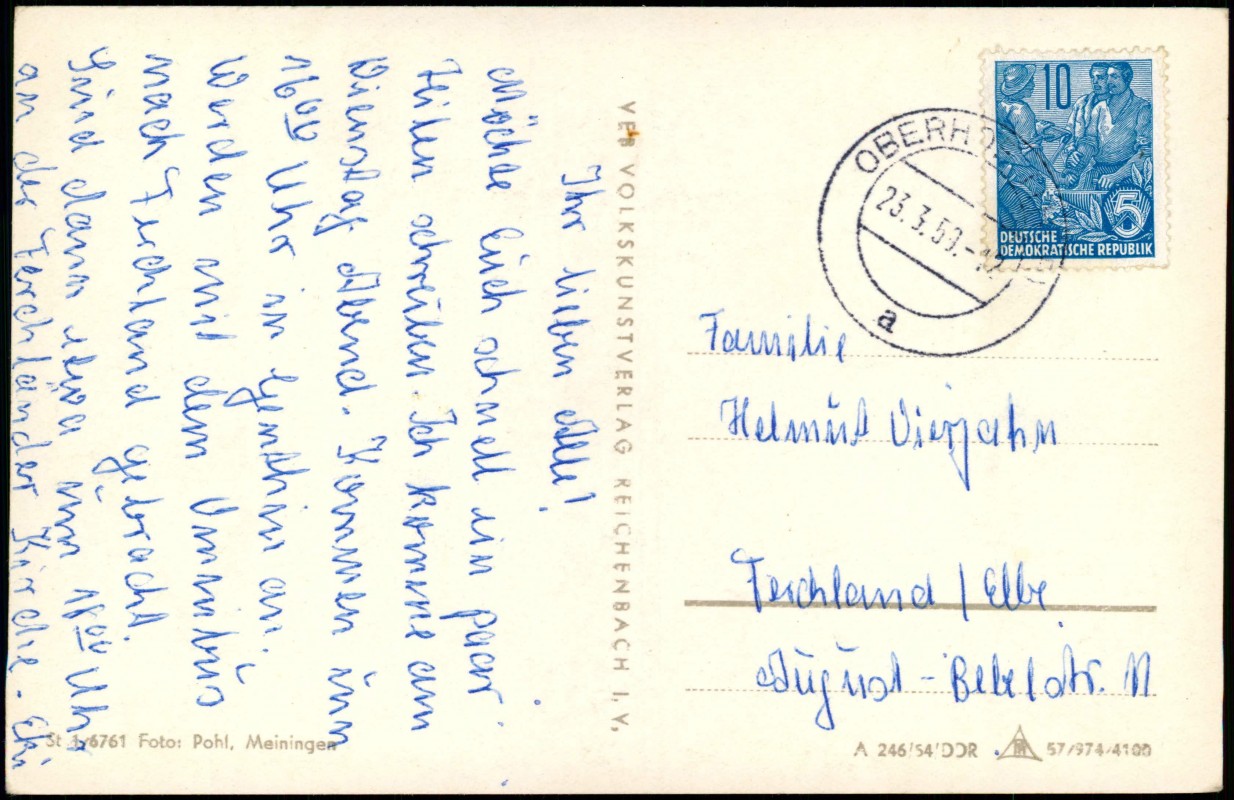 Ihr lieben Alle!
Möchte Euch schnell ein paar
Zeilen schreiben. Ich komme am
Dienstag Abend. Kommen um
16⁰⁰ Uhr in Genthin an.
Werden mit dem Omnibus
nach Ferchland gebracht.
Sind dann etwa um 18⁰⁰ Uhr
an der Ferchländer Kirche.
VEB VOLKSKUNSTVERLAG REICHENBACH I. V.
10
5
DEUTSCHE
DEMOKRATISCHE REPUBLIK
23.3.59.-12
a
Familie
Helmut Vierjahn
Ferchland / Elbe
August-Bebelstr. 11
St 1/6761 Foto: Pohl, Meiningen
A 246/54 DDR 57/974/4100